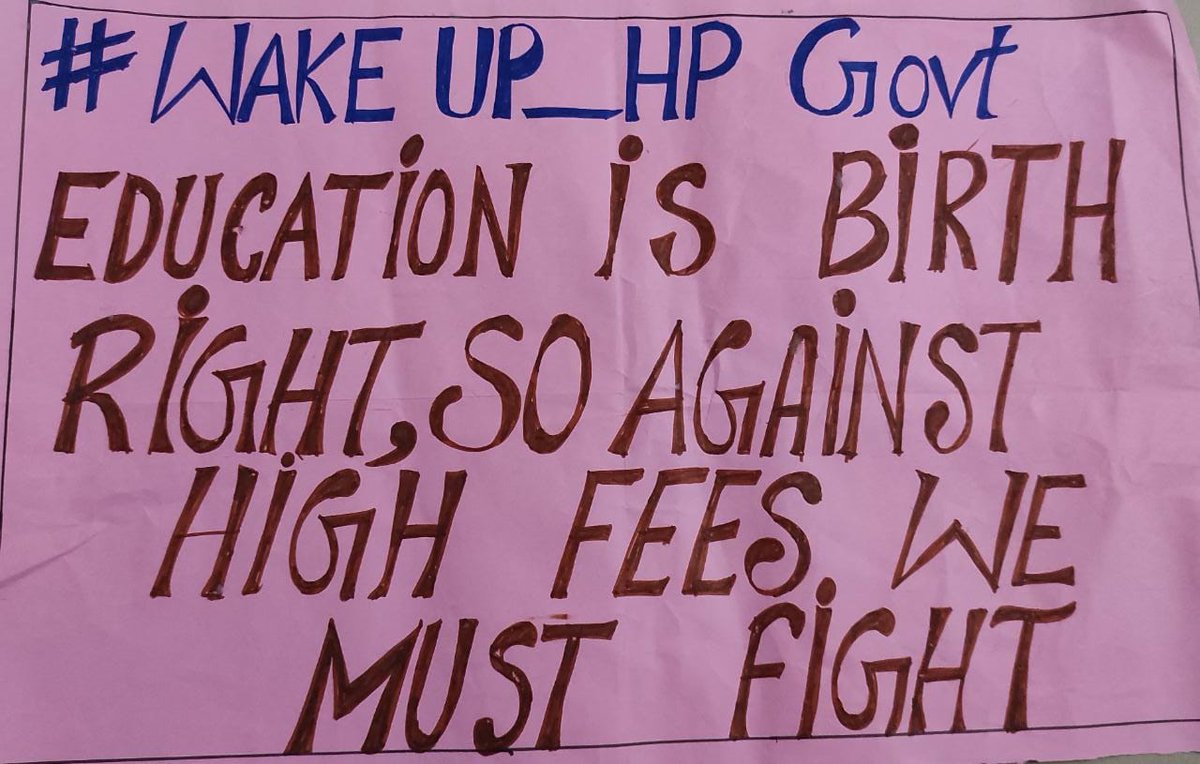 #WAKE UP_HP Govt
EDUCATiON iS BiRTH
RiGHT, SO AGAiNST
HiGH FEES. WE
MUST FiGHT